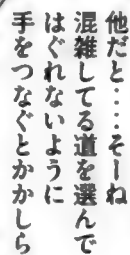 他だと・・・そーね
混雑してる道を選んで
はぐれないように
手をつなぐとかかしら